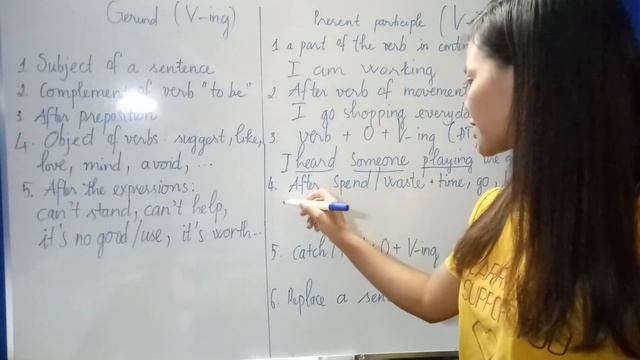 Gerund (V-ing)
1. Subject of a sentence
2. Complement of verb "to be"
3. After preposition
4. Object of verbs: suggest, like,
love, mind, avoid, ...
5. After the expressions:
can't stand, can't help,
it's no good/use, it's worth...
Present participle (V-
1. a part of the verb in
I am working
2. After verb of movement
I go shopping everyday
3. verb + O + V-ing
I heard someone playing the
4. After spend/waste + time, go,
5. catch/ O + V-ing
6. Replace a sen